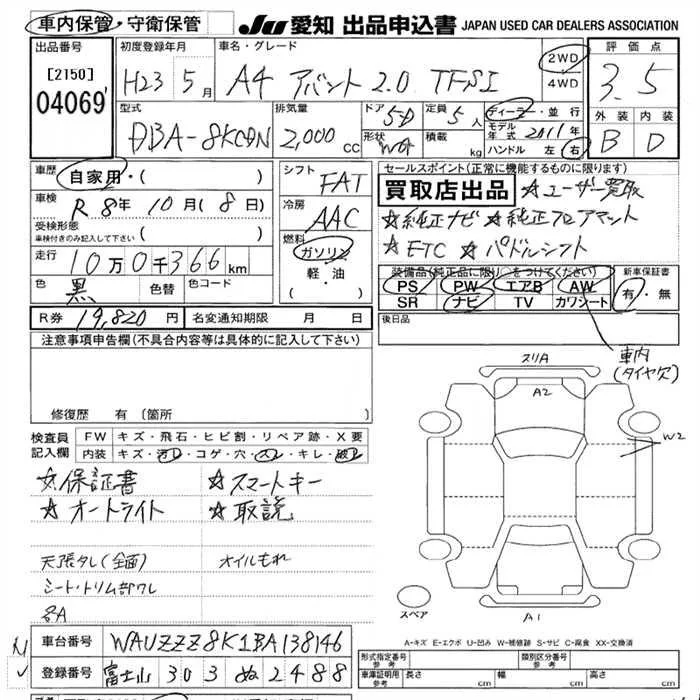 車内保管・守衛保管
JU 愛知 出品申込書 JAPAN USED CAR DEALERS ASSOCIATION
出品番号
[2150]
04069
初度登録年月
H23 5月
車名・グレード
A4 アバント 2.0 TFSI
2WD
4WD
評価点
3.5
外装 内装
B D
型式
DBA-8KCDN
排気量
2,000 cc
ドア
5D
形状
WGN
定員
5人
積載
kg
ディーラー・並行
モデル年式 2011年
ハンドル 左 右
車歴
自家用・( )
車検
R 8年 10月 (8日)
受検形態
車検付きのみ記入して下さい ( )
走行
10万0千366km
色
黒
色替
色コード
シフト
FAT
冷房
AAC
燃料
ガソリン
軽・油
( ・ )
セールスポイント(正常に機能するものに限ります)
買取店出品 ☆ユーザー買取
☆純正ナビ ☆純正フロアマット
☆ETC ☆パドルシフト
装備品(純正品に限り○をつけてください)
PS PW エアB AW
SR ナビ TV カワシート
新車保証書
有・無
R券 19,820円
名変通知期限 月 日
後日品
注意事項申告欄(不具合内容等は具体的に記入して下さい)
修復歴 有 (箇所
車内
(タイヤ欠)
スリA
A2
W2
検査員記入欄
FW キズ・飛石・ヒビ割・リペア跡・X要
内装 キズ・汚レ・コゲ・穴・スレ・キレ・破レ
☆保証書 ☆スマートキー
☆オートライト ☆取説
天張タレ(全面) オイルもれ
シート・トリム部ワレ
各A
スペア
A1
A-キズ E-エクボ U-凹み W-補修跡 S-サビ C-腐食 XX-交換済
車台番号 WAUZZZ8K1BA138146
登録番号 富士山 303 ぬ 2488
形式指定番号 参考
類別区分番号 参考
車庫証明用 参考
長さ cm
幅 cm
高さ cm